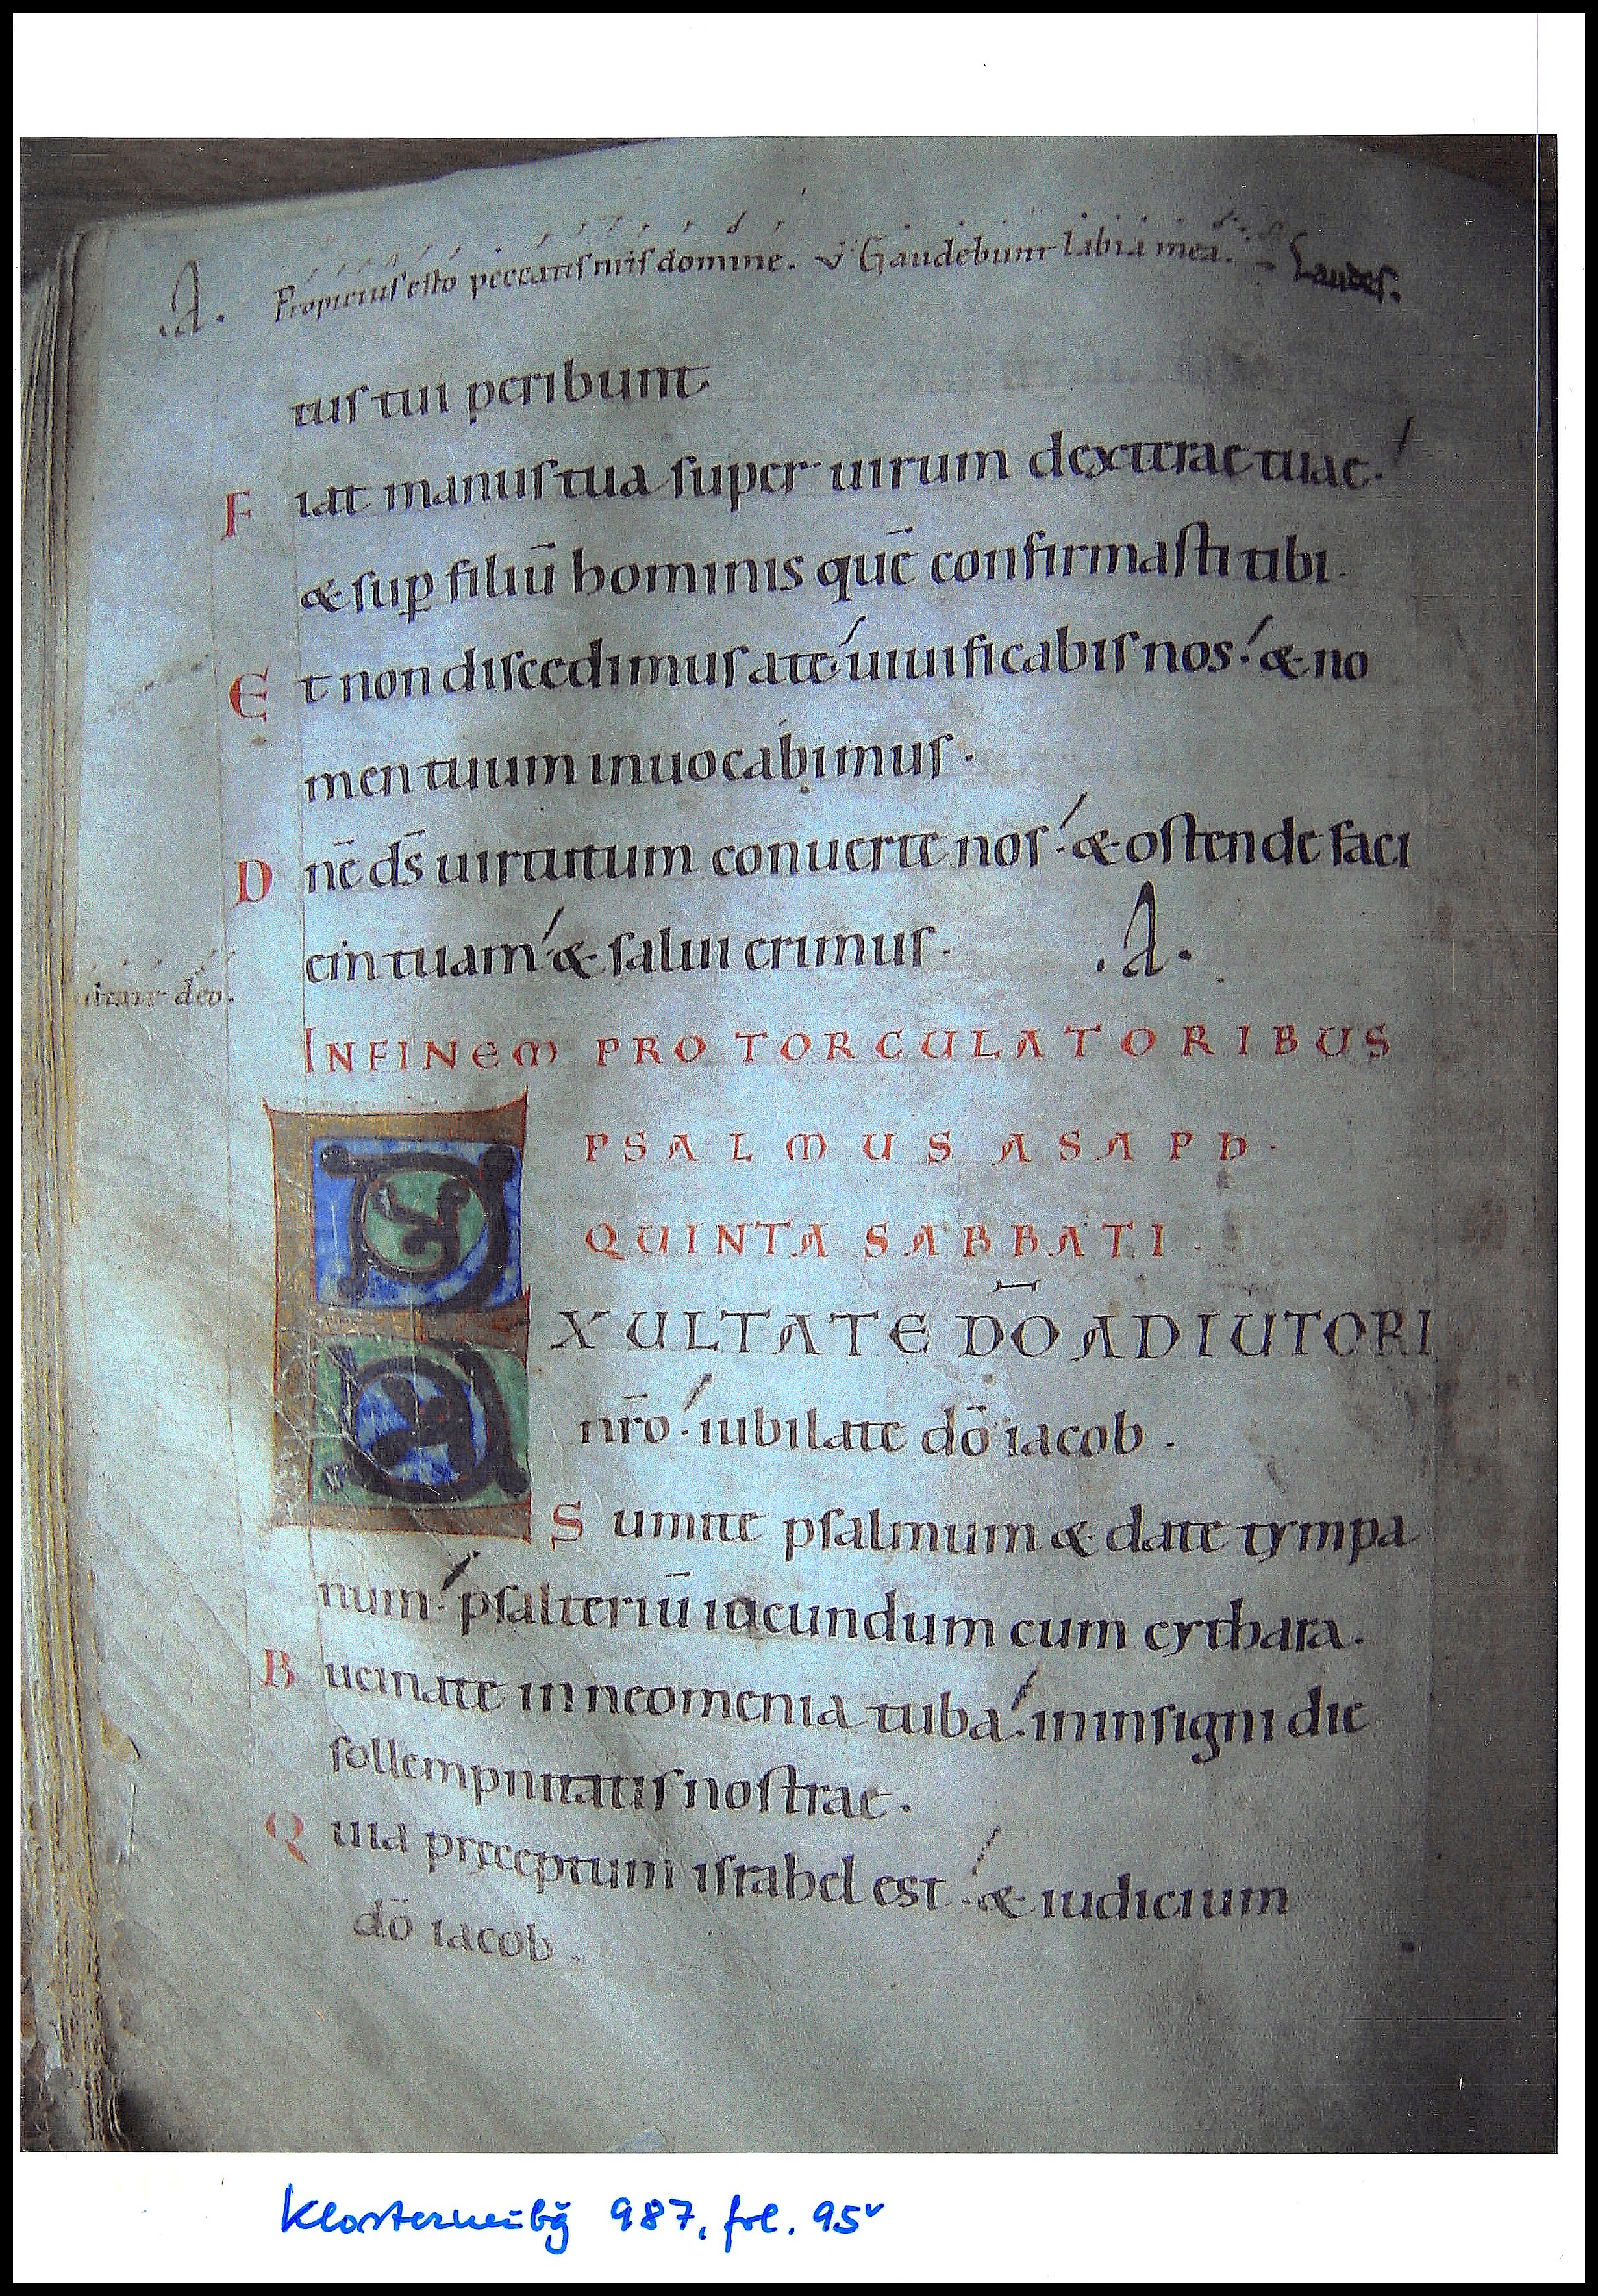 .A. Propicius esto peccatis nr̄is domine. v̄ Gaudebunt labia mea. Laudes.
tuſ tui peribunt
F iat manuſ tua ſuper uirum dexterae tuae.
& ſup̱ filiū hominis quē confirmaſti tibi.
E t non diſcedimuſ a te. uiuificabiſ nos. & no
men tuum inuocabimuſ.
D nē dſ̄ uirtutum conuerte noſ. & oſtende faci
em tuam & ſalui erimuſ. .A.
deo.
INFINEM PRO TORCULATORIBUS
PSALMUS ASAPH.
QUINTA SABBATI.
EXULTATE DŌ ADIUTORI
nr̄o. iubilate dō iacob.
S umite pſalmum & date tympa
num. pſalteriū iocundum cum cythara.
B ucinate in neomenia tuba. in inſigni die
ſollempnitatiſ noſtrae.
Q uia pręceptum iſrahel est. & iudicium
dō iacob.
Klosterneubg 987, fol. 95v